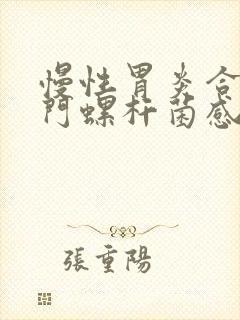 慢性胃炎合
門螺杆菌感
張重陽